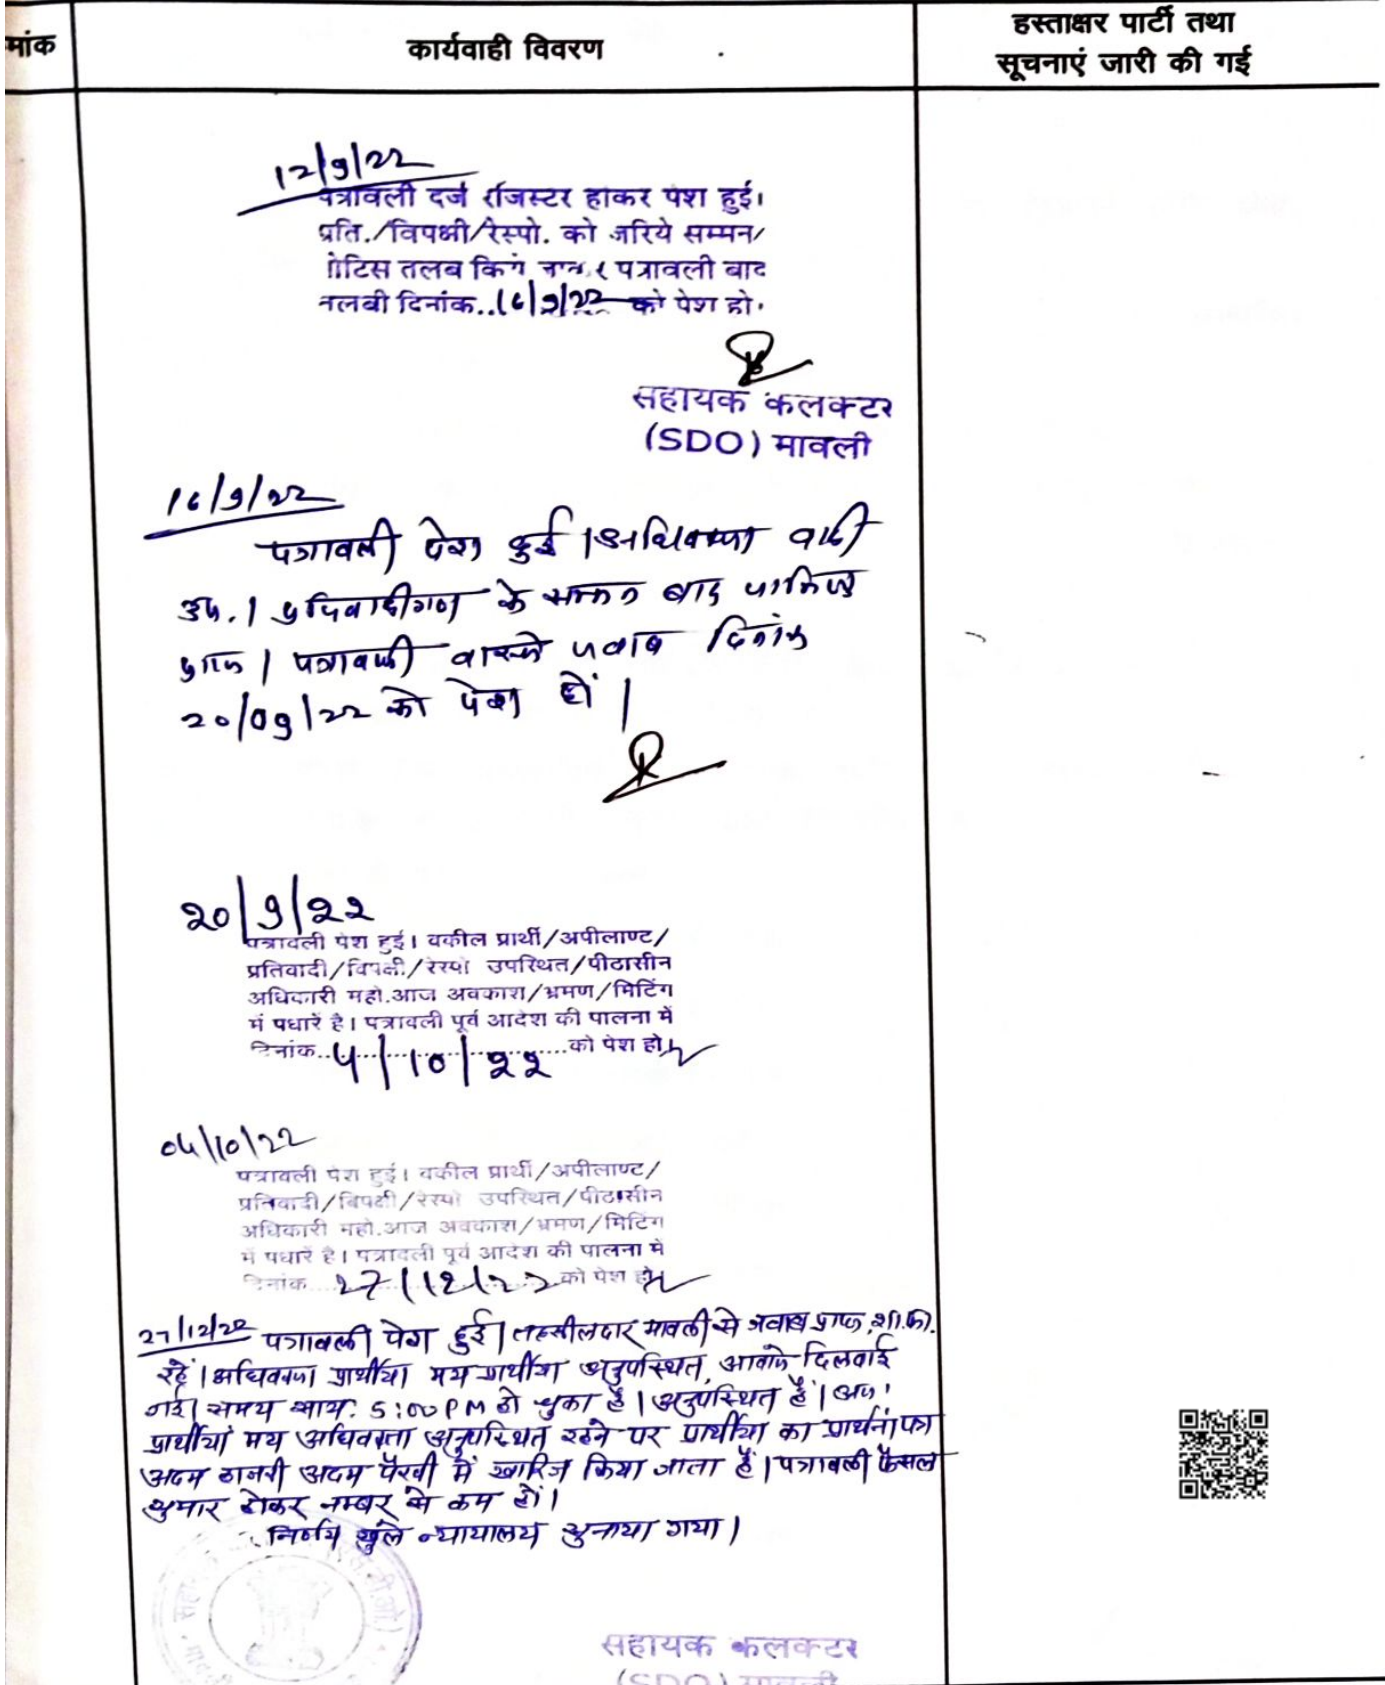 मांक
कार्यवाही विवरण
हस्ताक्षर पार्टी तथा
सूचनाएं जारी की गई
12/9/22
पत्रावली दर्ज रजिस्टर होकर पेश हुई।
प्रति./विपक्षी/रेस्पो. को जरिये सम्मन/
नोटिस तलब किये जावे। पत्रावली बाद
तलबी दिनांक..16/9/22 को पेश हो।
सहायक कलक्टर
(SDO) मावली
16/9/22
पत्रावली पेश हुई। अधिवक्ता वादी
उप.। प्रतिवादीगण के सम्मन बाद तामिल
प्राप्त। पत्रावली वास्ते जवाब दिनांक
20/09/22 को पेश हों।
20/9/22
पत्रावली पेश हुई। वकील प्रार्थी/अपीलाण्ट/
प्रतिवादी/विपक्षी/रेस्पो उपस्थित/पीठासीन
अधिकारी महो.आज अवकाश/भ्रमण/मिटिंग
में पधारें है। पत्रावली पूर्व आदेश की पालना में
दिनांक..4/10/22..को पेश हो
04/10/22
पत्रावली पेश हुई। वकील प्रार्थी/अपीलाण्ट/
प्रतिवादी/विपक्षी/रेस्पो उपस्थित/पीठासीन
अधिकारी महो.आज अवकाश/भ्रमण/मिटिंग
में पधारें है। पत्रावली पूर्व आदेश की पालना में
दिनांक...27/12/22..को पेश हो
27/12/22 पत्रावली पेश हुई। तहसीलदार मावली से जवाब प्राप्त, शा.फा.
रहें। अधिवक्ता प्रार्थीया मय प्रार्थीया अनुपस्थित, आवाजे दिलवाई
गई। समय सायं: 5:00 PM हो चुका है। अनुपस्थित है। अतः
प्रार्थीया मय अधिवक्ता अनुपस्थित रहने पर प्रार्थीया का प्रार्थना पत्र
अदम हाजरी अदम पैरवी में खारिज किया जाता है। पत्रावली फैसल
शुमार होकर नम्बर से कम हों।
निर्णय खुले न्यायालय सुनाया गया।
सहायक कलक्टर
(SDO) मावली